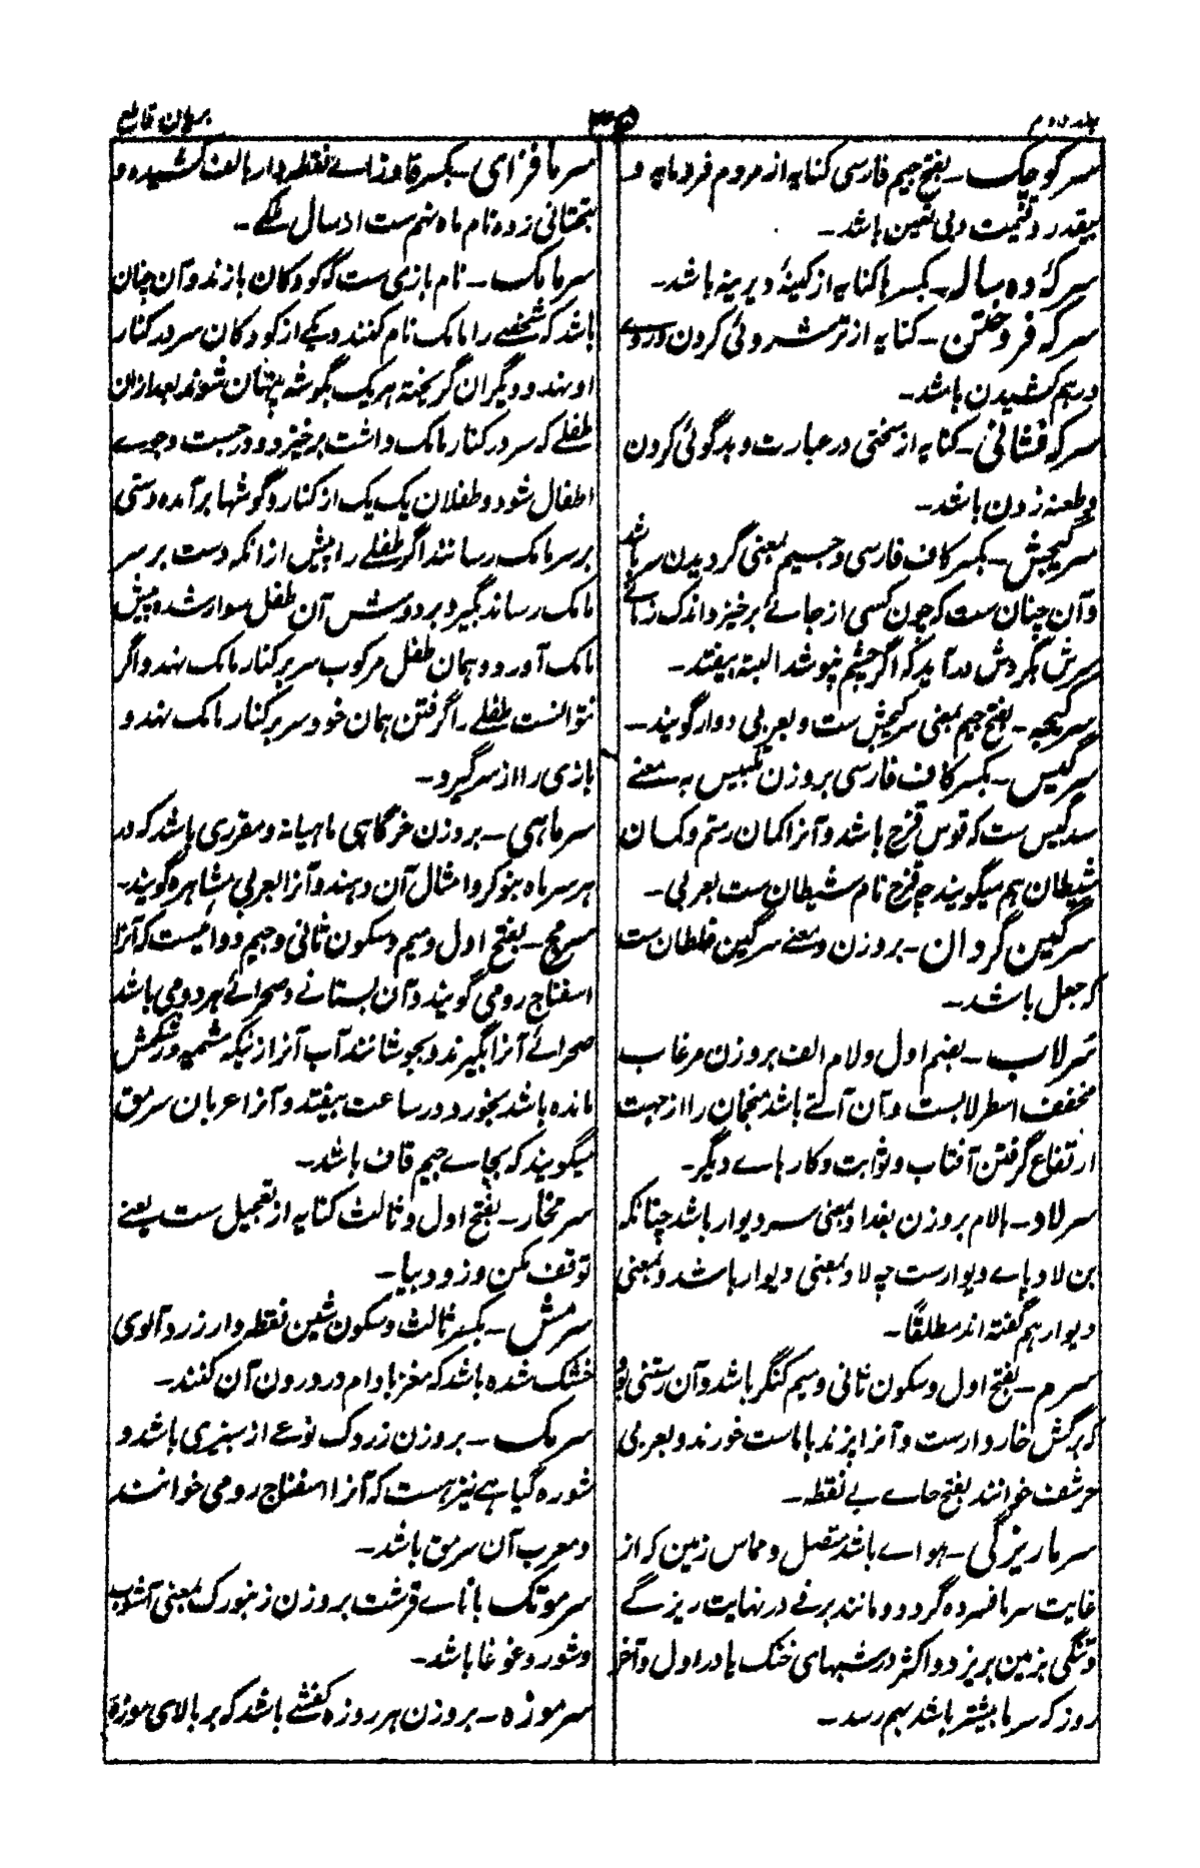 جلد دوم
۳۵
برهان قاطع
سرکوچک ـ بفتح جیم فارسی کنایه از مردم فرومایه و
بیقدر و قیمت و بی تعین باشد ـ
سرکهٔ ده ساله ـ بکسر ها کنایه از کینهٔ دیرینه باشد ـ
سرکه فروختن ـ کنایه از ترشروئی کردن و روے
درهم کشیدن باشد ـ
سرکه فشانی ـ کنایه از سختی در عبارت و بدگوئی کردن
و طعنه زدن باشد ـ
سرگیجش ـ بکسر کاف فارسی و جیم بمعنی گردیدن سر باشد
و آن چنان ست که چون کسی از جائے برخیزد اندک زمانے
سرش بگردش درآید که اگر چشم نپوشد البته بیفتد ـ
سرگیجه ـ بفتح جیم بمعنی سرگیجش ست و بعربی دوار گویند ـ
سرگیس ـ بکسر کاف فارسی بروزن تلبیس بمعنے
سدکیس ست که قوس قزح باشد و آنرا کمان رستم و کمان
شیطان هم میگویند چه قزح نام شیطان ست بعربی ـ
سرگین گردان ـ بروزن و معنے سرگین غلطان ست
که جعل باشد ـ
سُرلاب ـ بضم اول و لام الف بروزن مرغاب
مخفف اسطرلابست و آن آلتے باشد منجمان را از جهت
ارتفاع گرفتن آفتاب و ثوابت و کارهاے دیگر ـ
سرلاد ـ بالام بروزن بغداد بمعنی سر دیوار باشد چنانکه
بن لاد پاے دیوارست چه لاد بمعنی دیوار باشد و بمعنی
دیوار هم گفته اند مطلقًا ـ
سرم ـ بفتح اول و سکون ثانی و میم کنگر باشد و آن رستنی بود
که برگش خاردارست و آنرا پزند با ماست خورند و بعربی
حرشف خوانند بفتح حاے بے نقطه ـ
سرماریزگی ـ هواے باشد متصل و مماس زمین که از
غایت سرما فسرده گردد و مانند برفے در نهایت ریزگے
و تنگی بزمین بریزد و اکثر در شبهای خنک یا در اول و آخر
روز که سرما بیشتر باشد بهم رسد ـ
سرمافزای ـ بکسر فا و زاے نقطه دار بالف کشیده و
بتحتانی زده نام ماه نهم ست از سال ملکے ـ
سرمامک ـ نام بازی ست که کودکان بازند و آن چنان
باشد که شخصے را مامک نام کنند و یکے از کودکان سر در کنار
او نهد و دیگران گریخته هر یک بگوشه پنهان شوند بعد ازان
طفلے که سر در کنار مامک داشت برخیزد و در جست و جوے
اطفال شود و طفلان یک یک از کنار و گوشها برآمده دستی
بر سر مامک رسانند اگر طفلے را پیش از انکه دست بر سر
مامک رساند بگیرد بر دوش آن طفل سوار شده پیش
مامک آورد و همان طفل مرکوب سر بر کنار مامک نهد و اگر
نتوانست طفلے را گرفتن همان خود سر بر کنار مامک نهد و
بازی را از سر گیرد ـ
سرماهی ـ بروزن خرگاهی ماهیانه و مقرری باشد که در
هر سر ماه بنوکر و امثال آن دهند و آنرا بعربی مشاهره گویند ـ
سرمج ـ بفتح اول و میم و سکون ثانی و جیم دوائیست که آنرا
اسفناج رومی گویند و آن بستانے و صحرائے هر دو می باشد
صحرائے آنرا بگیرند و بجوشانند آب آنرا از نیکه مشیمه در شکمش
مانده باشد بخورد در ساعت بیفتد و آنرا عربان سرمق
میگویند که بجاے جیم قاف باشد ـ
سرمخار ـ بفتح اول و ثالث کنایه از تعجیل ست یعنے
توقف مکن و زود بیا ـ
سرمش ـ بکسر ثالث و سکون شین نقطه دار زرد آلوی
خشک شده باشد که مغز بادام در درون آن کنند ـ
سرمک ـ بروزن زردک نوعے از سبزی باشد و
شوره گیاهے نیز هست که آنرا اسفناج رومی خوانند
و معرب آن سرمق باشد ـ
سرموتک باتاے قرشت بروزن زنبورک بمعنی آشوب
و شور و غوغا باشد ـ
سرموزه ـ بروزن هر روزه کفشے باشد که بر بالای موزه